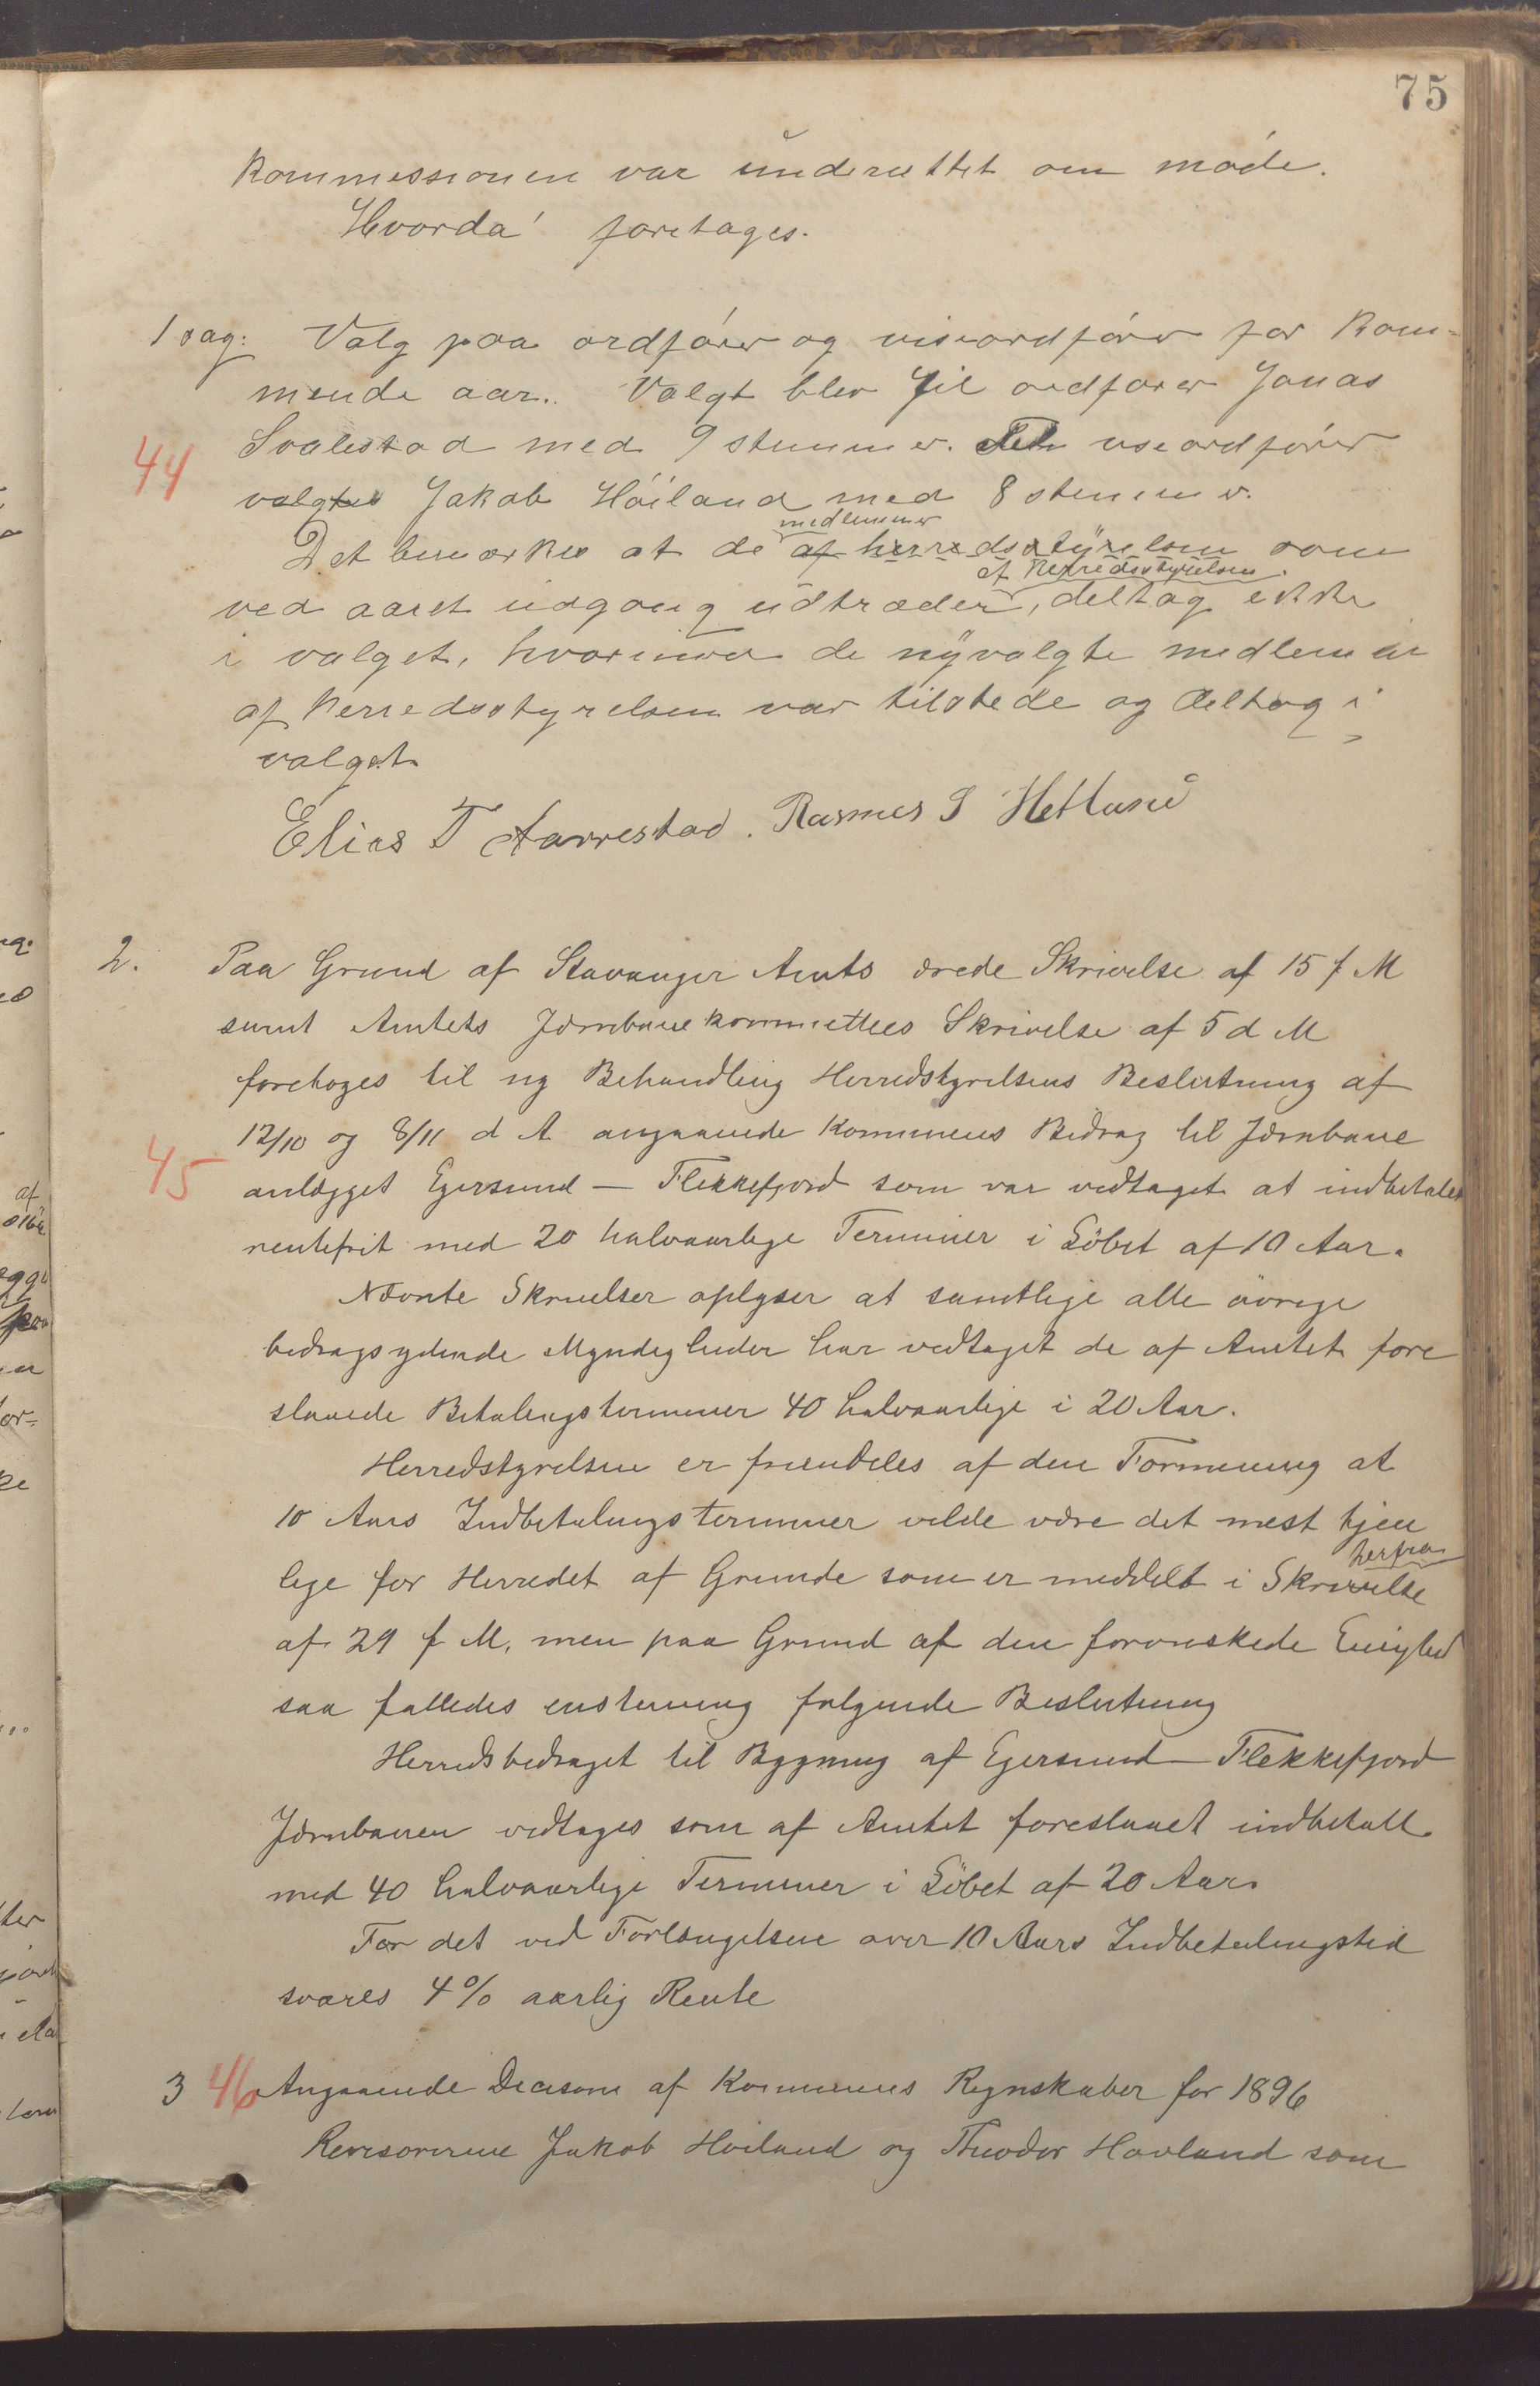 75
Kommessionen var underrettet om møde.
Hvorda' foretages.
1 sag: Valg paa ordfører og viseordfører for kom-
mende aar. Valgt blev til ordfører Jonas
44 Svalestad med 9 stemmer. Til viseordfører
valgtes Jakob Höiland med 8 stemmer.
medlemmer
Det bemærkes at de af herredsstÿrelsen som
af herredsstyrelsen
ved aaret udgang udtræder, deltog ikke
i valget, hvorimod de nÿvalgte medlemer
af herredsstyrelsen var tilstede og deltog i
valget.
Elias T Aarrestad. Rasmus S Hetland
2. Paa Grund af Stavanger Amts ærede Skrivelse af 15 f M
samt Amtets Jernbanekommittees Skrivelse af 5 d M
foretages til ny Behandling Herredstyrelsens Beslutning af
12/10 og 8/11 d A angaaende Kommunens Bidrag til Jernbane
45 anlægget Egersund — Flekkefjord som var vedtaget at indbetales
rentefrit med 20 halvaarlige Terminer i Löbet af 10 Aar.
Nævnte Skrivelser oplyser at samtlige alle övrige
bidragsydende Myndigheder har vedtaget de af Amtet fore
slaaede Betalingsterminer 40 halvaarlige i 20 Aar.
Herredstyrelsen er fremdeles af den Formening at
10 Aars Indbetalingsterminer vilde være det mest tjen
herfra
lige for Herredet af Grunde som er meddelt i Skrivelse
af 29 f M, men paa Grund af den forønskede Enighed
saa fattedes enstemig følgende Beslutning
Herredsbidraget til Bygning af Egersund — Flekkefjord
Jernbanen vedtages som af Amtet foreslaaet indbetalt
med 40 halvaarlige Terminer i Löbet af 20 Aar.
For det ved Forlængelsen over 10 Aars Indbetalingstid
svares 4% aarlig Rente
3 46 Angaaende Decision af Kommunens Regnskaber for 1896
Revisorerne Jakob Höiland og Theodor Hovland som